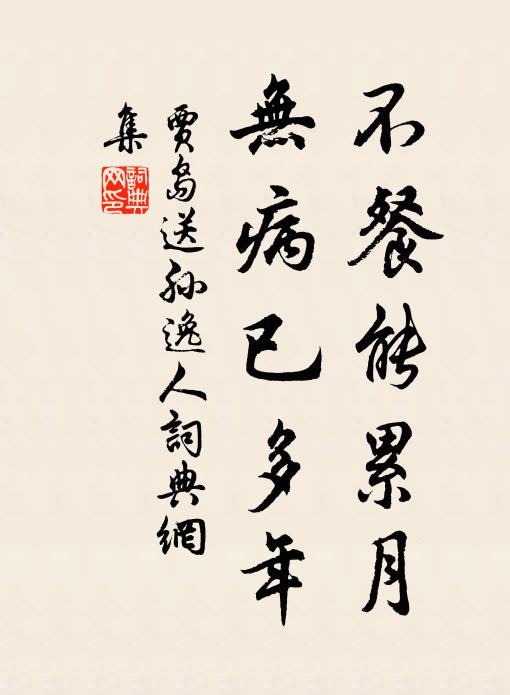 不餐能累月
無病已多年
賈島送孙逸人詞典網
集
詞典
网印